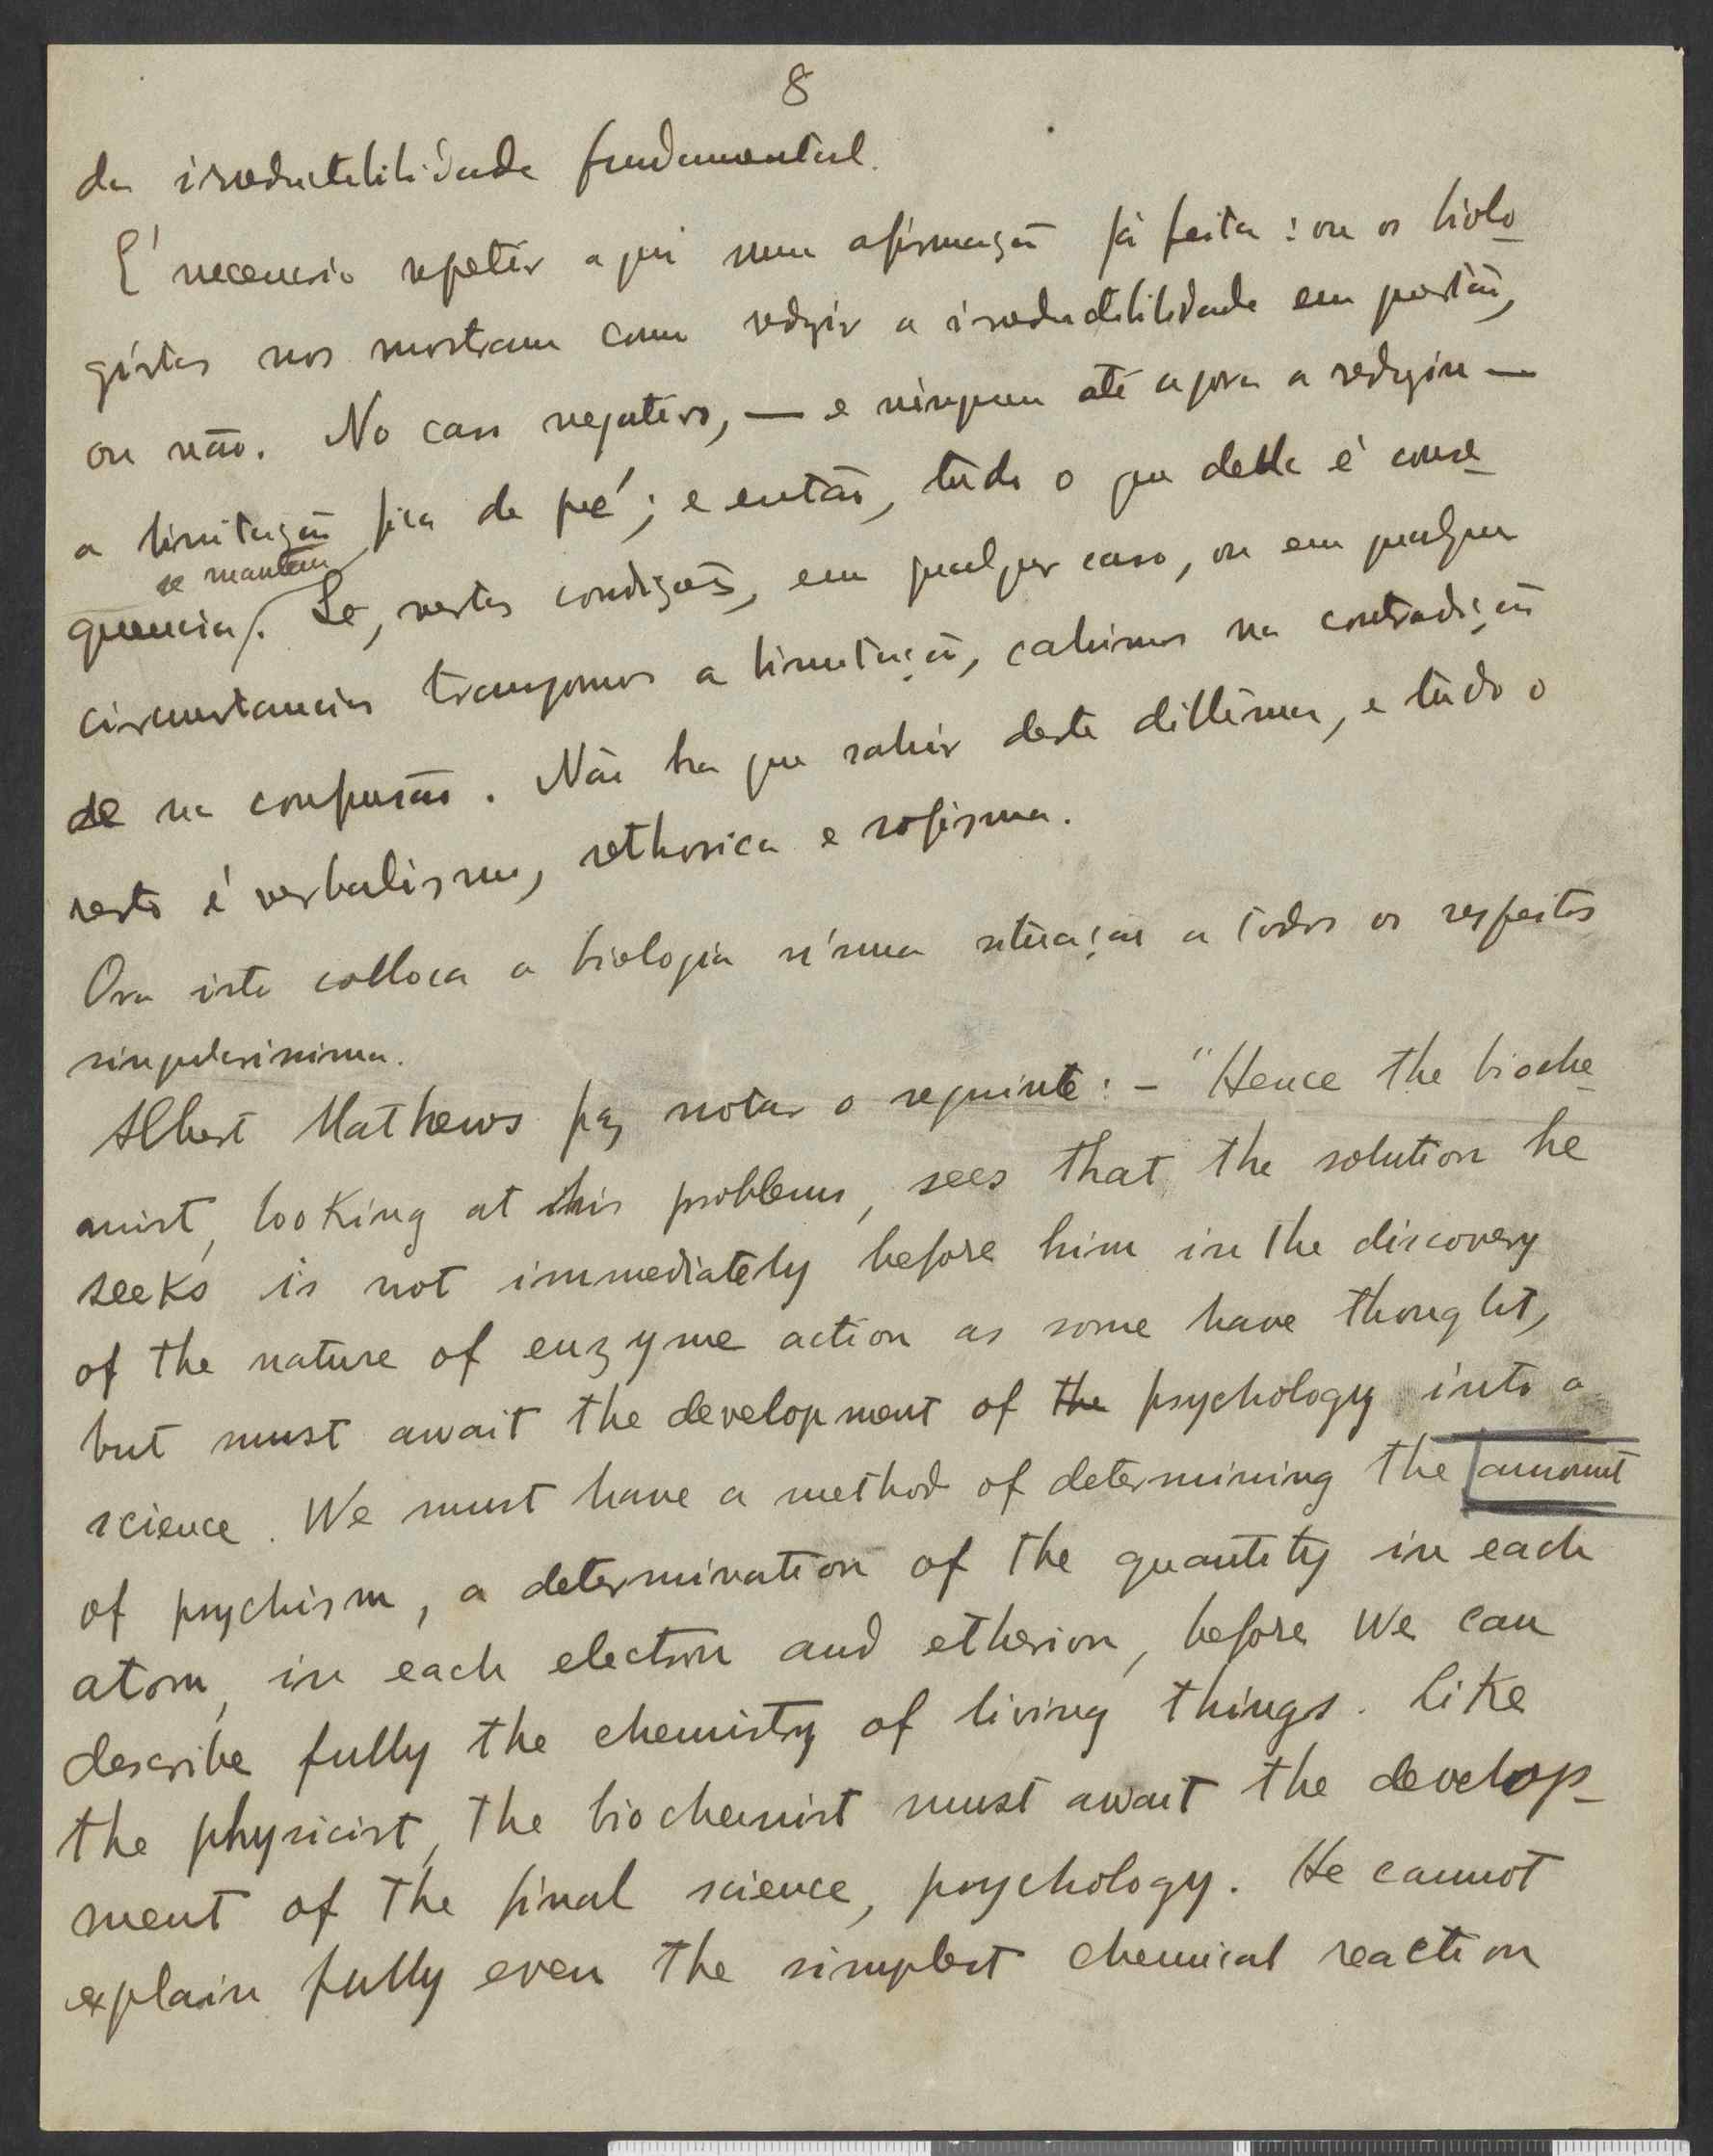 8
da irreductibilidade fundamental.
É necessario repetir aqui uma afirmação já feita: ou os biolo-
gistas nos mostram como redzir a irreductibilidade em questão,
ou não. No caso negativo, — e ninguem até agora a reduziu —
a limitação fica de pé; e então, tudo o que della é conse-
se mantem
quencia. Se, nestas condições, em qualquer caso, ou em qualquer
circunstancias transpomos a limitação, cahimos na contradição
e na confusão. Não ha que sahir deste dillema, e tudo o
resto é verbalismo, rethorica e sofisma.
Ora isto colloca a biologia n'uma situação a todos os respeitos
singularissima.
Albert Mathews faz notar o seguinte: – "Hence the bioche-
mist, looking at this problems, sees that the solution he
seeks is not immediately before him in the discovery
of the nature of enzyme action as some have thought,
but must await the development of the psychology into a
science. We must have a method of determining the amount
of psychism, a determination of the quantity in each
atom, in each electron and etherion, before we can
describe fully the chemistry of living things. Like
the physicist, the biochemist must await the develop-
ment of the final science, psychology. He cannot
explain fully even the simplest chemical reaction